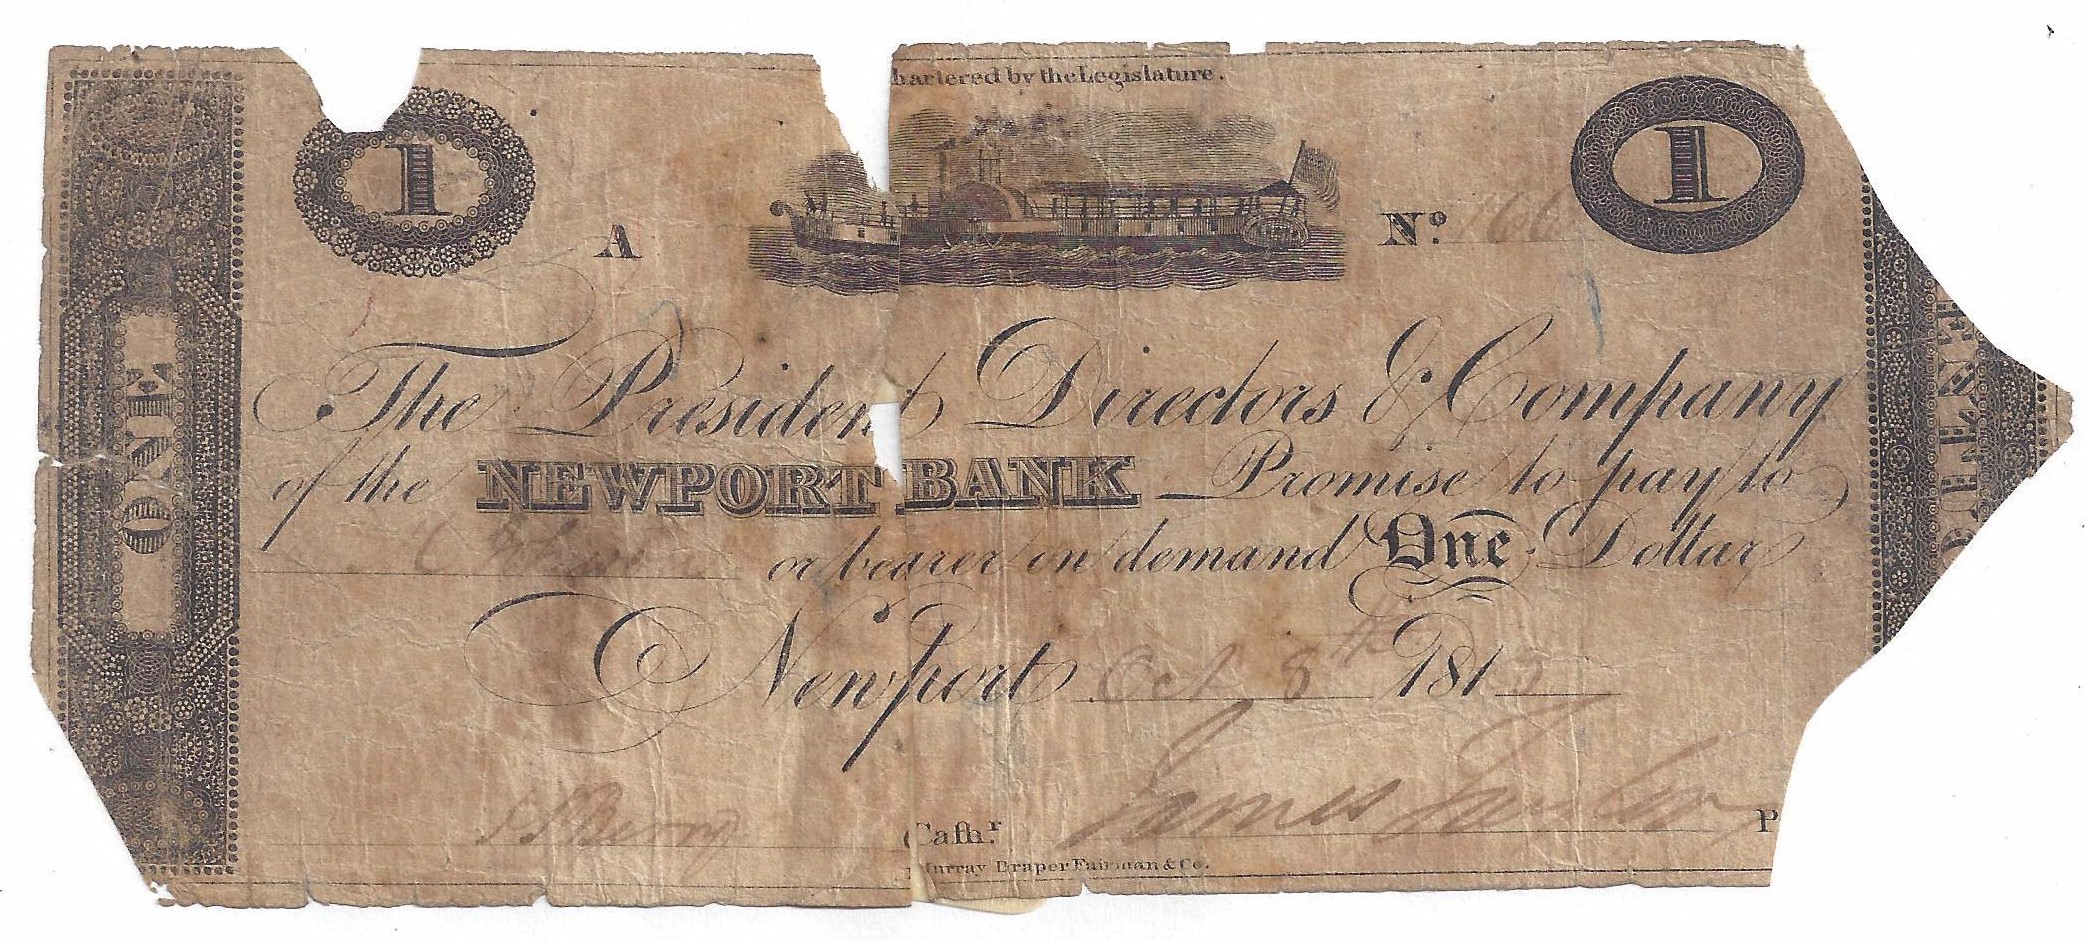 hartered by the Legislature.
1
A
No. 166
1
The President Directors & Company
of the NEWPORT BANK Promise to pay to
or bearer on demand One Dollar
Newport Oct 8th 181
Cashr. James P
Murray Draper Fairman & Co.
ONE